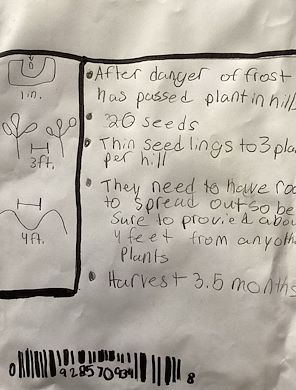 1in.
3ft.
4ft.
After danger of frost
has passed plant in hill
20 seeds
Thin seedlings to 3 pla
per hill
They need to have roo
to spread out so be
Sure to provied abou
4 feet from anyoth
Plants
Harvest 3.5 months
0 92857 0934 8